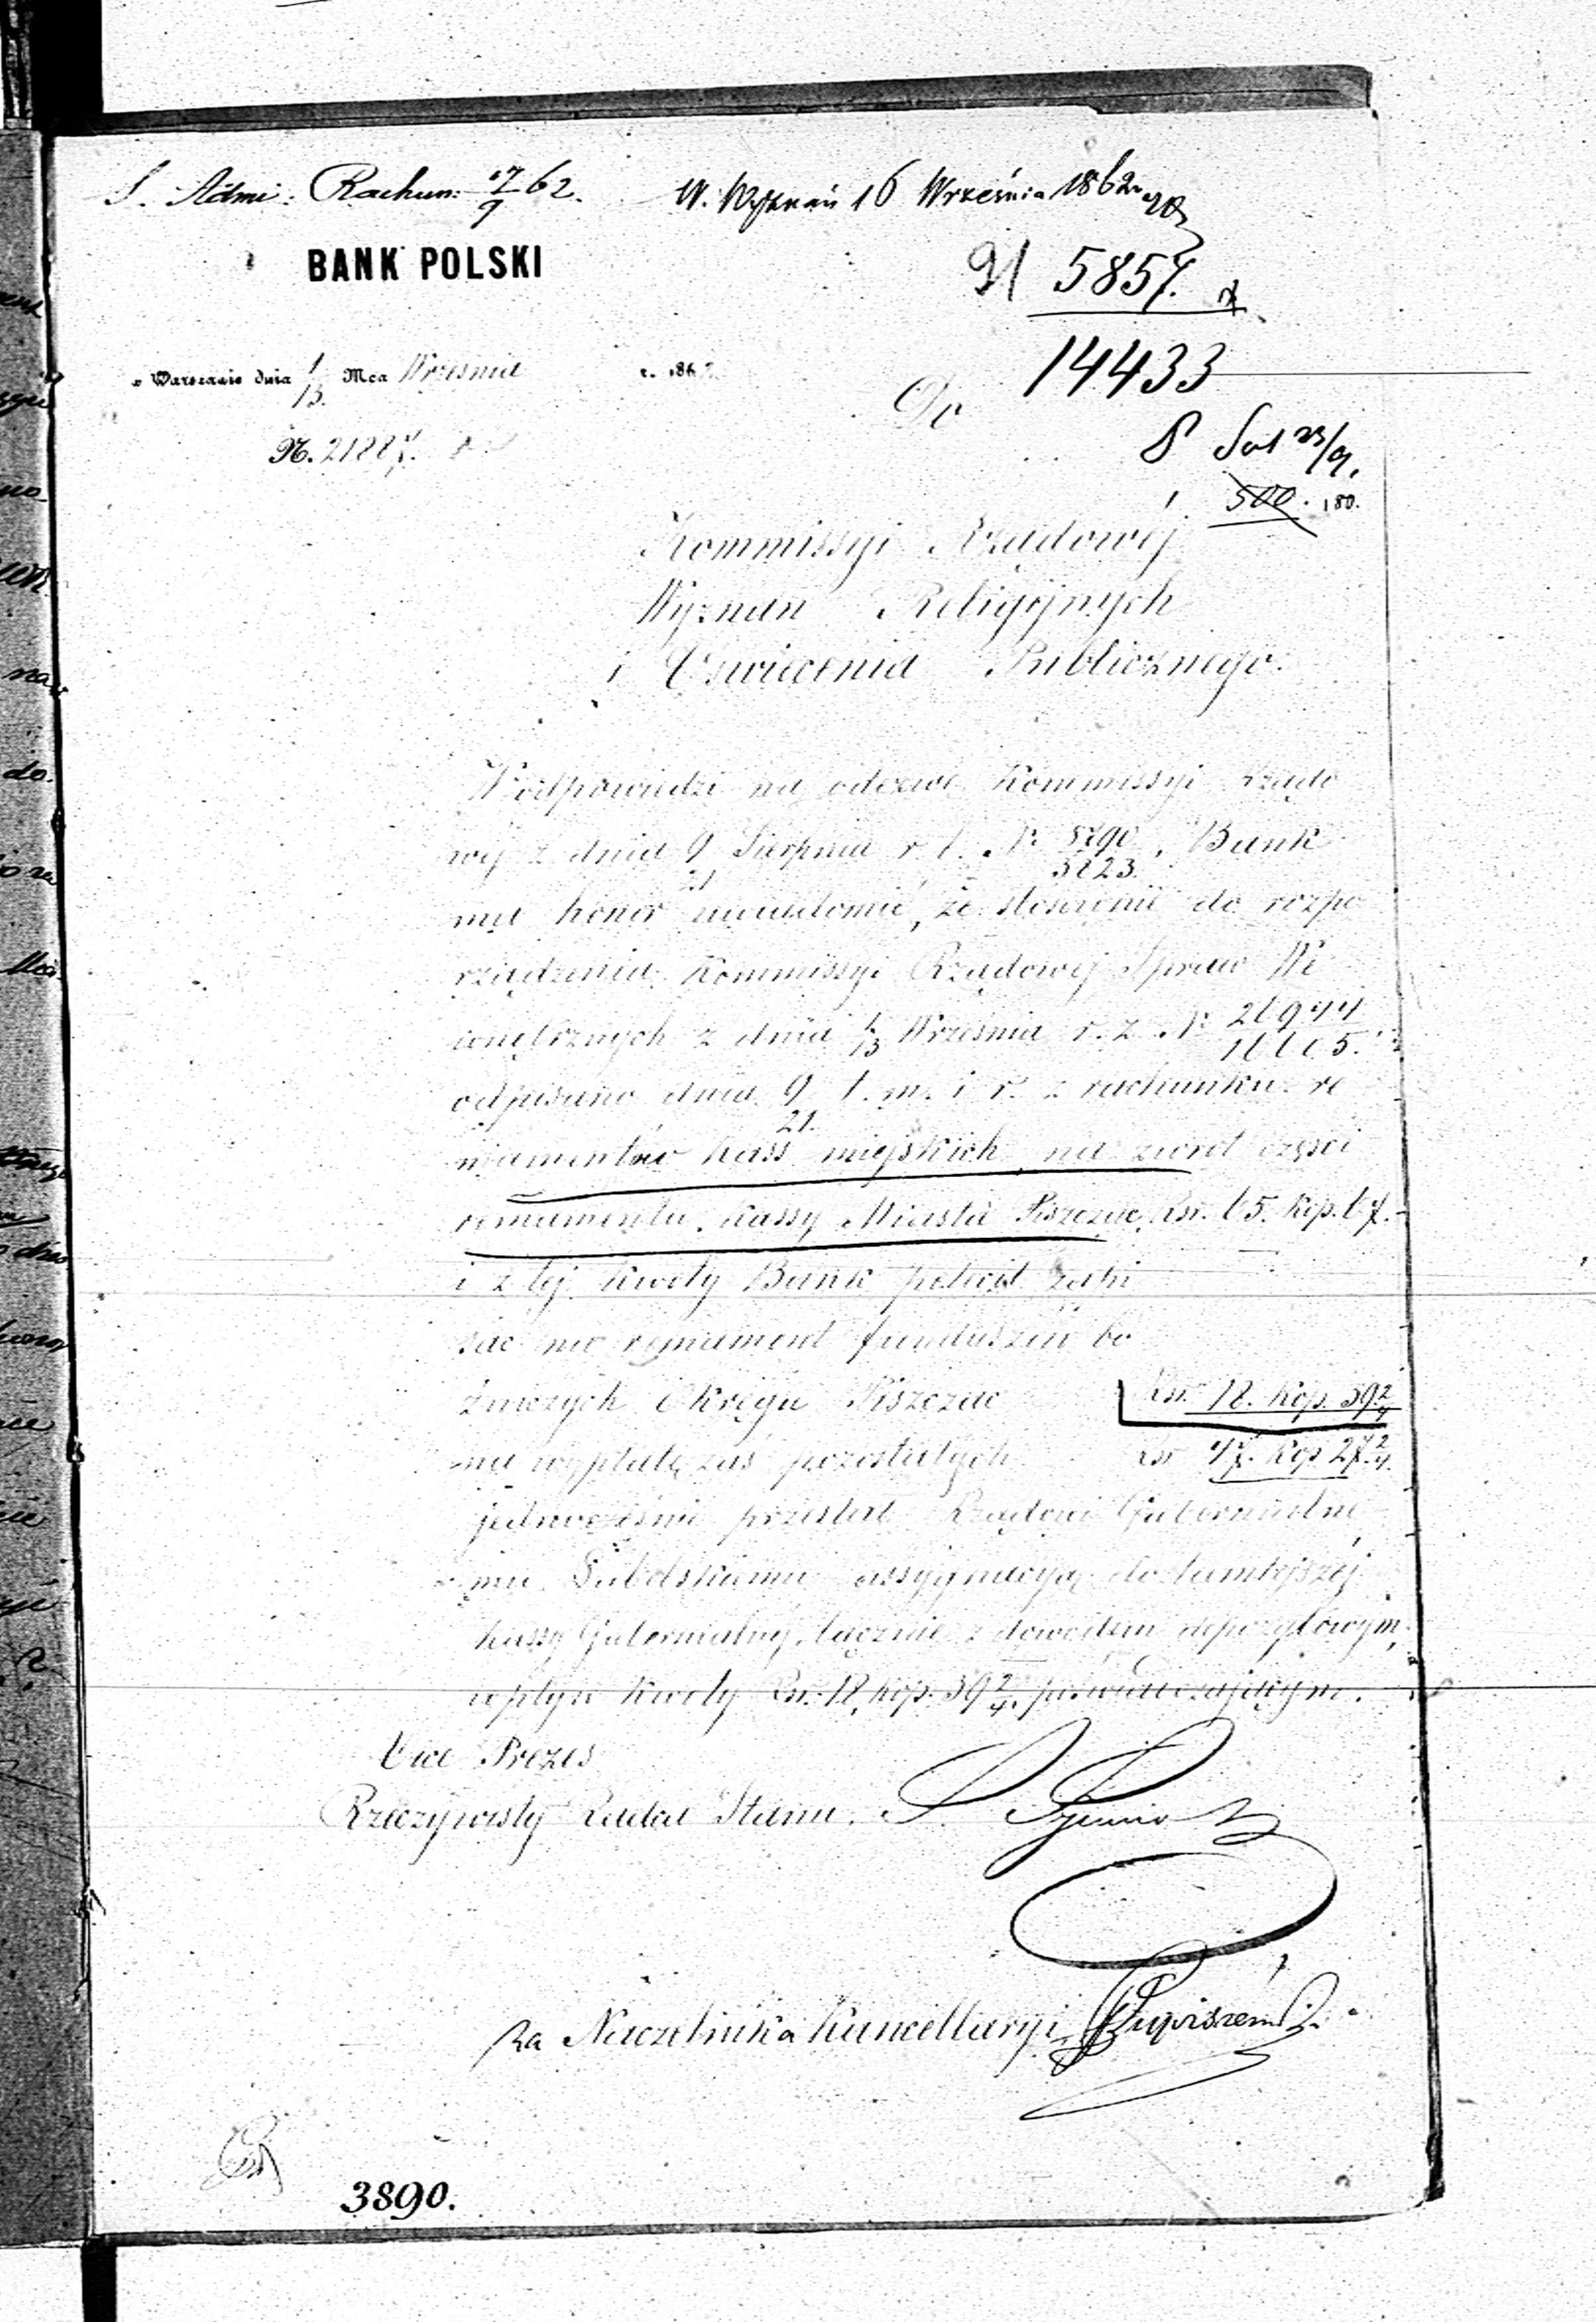 S. Admi: Rachun: 17/9 62.
W. Wyznań 16 Września 1862
BANK POLSKI
5857.
14433
w Warszawie dnia 1/13 Mca Września r. 186
Do
N. 2188
8
500. 180.
Kommissyi Rządowéj
Wyznań Religijnych
i Oświecenia Publicznego.
W odpowiedzi na odezwę Kommissyi Rządo
wéj z dnia 9/21 Sierpnia r. b. N° 5790/3823. Bank
ma honor uwiadomić, że stosownie do rozpo
rządzenia Kommissyi Rządowéj Spraw We
wnętrznych z dnia 1/13 Września r. z. N°
odpisano dnia 9/21. b. m. i r. z rachunku re
manentów kass miejskich, na zwrot części
remanentu kassy Miasta Piszczac, Rsr. 65. kop. 67.
i z téj kwoty Bank polecił zapi
sać na remanent funduszu bo
żniczych Okręgu Piszczac Rsr. 18. kop. 39 2/4
na wypłatę zaś pozostałych Rsr 47. kop 27 2/4.
jednocześnie przesłał Rządowi Gubernialne
mu Lubelskiemu assygnacyą do tamtejszéj
kassy Gubernialnéj, łącznie z dowodem depozytowym,
wpływ kwoty Rsr. 18, kop. 39 2/4, poświadczającym.
Vice Prezes
Rzeczywisty Radca Stanu.
za Naczelnika Kancellaryi
3890.